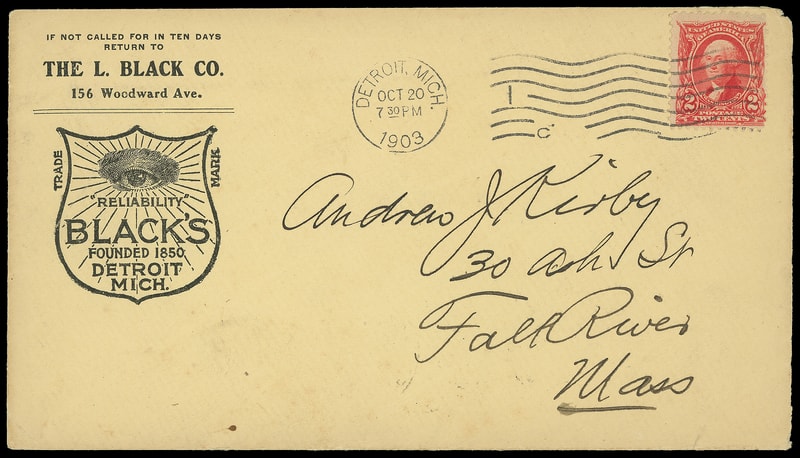 IF NOT CALLED FOR IN TEN DAYS
RETURN TO
THE L. BLACK CO.
156 Woodward Ave.
TRADE
MARK
"RELIABILITY"
BLACK'S
FOUNDED 1850
DETROIT
MICH.
DETROIT, MICH.
OCT 20
7 30 PM
1903
1
C
UNITED STATES
OF AMERICA
2 2
POSTAGE
TWO CENTS
Andrew J Kirby
30 Ash St
Fall River
Mass